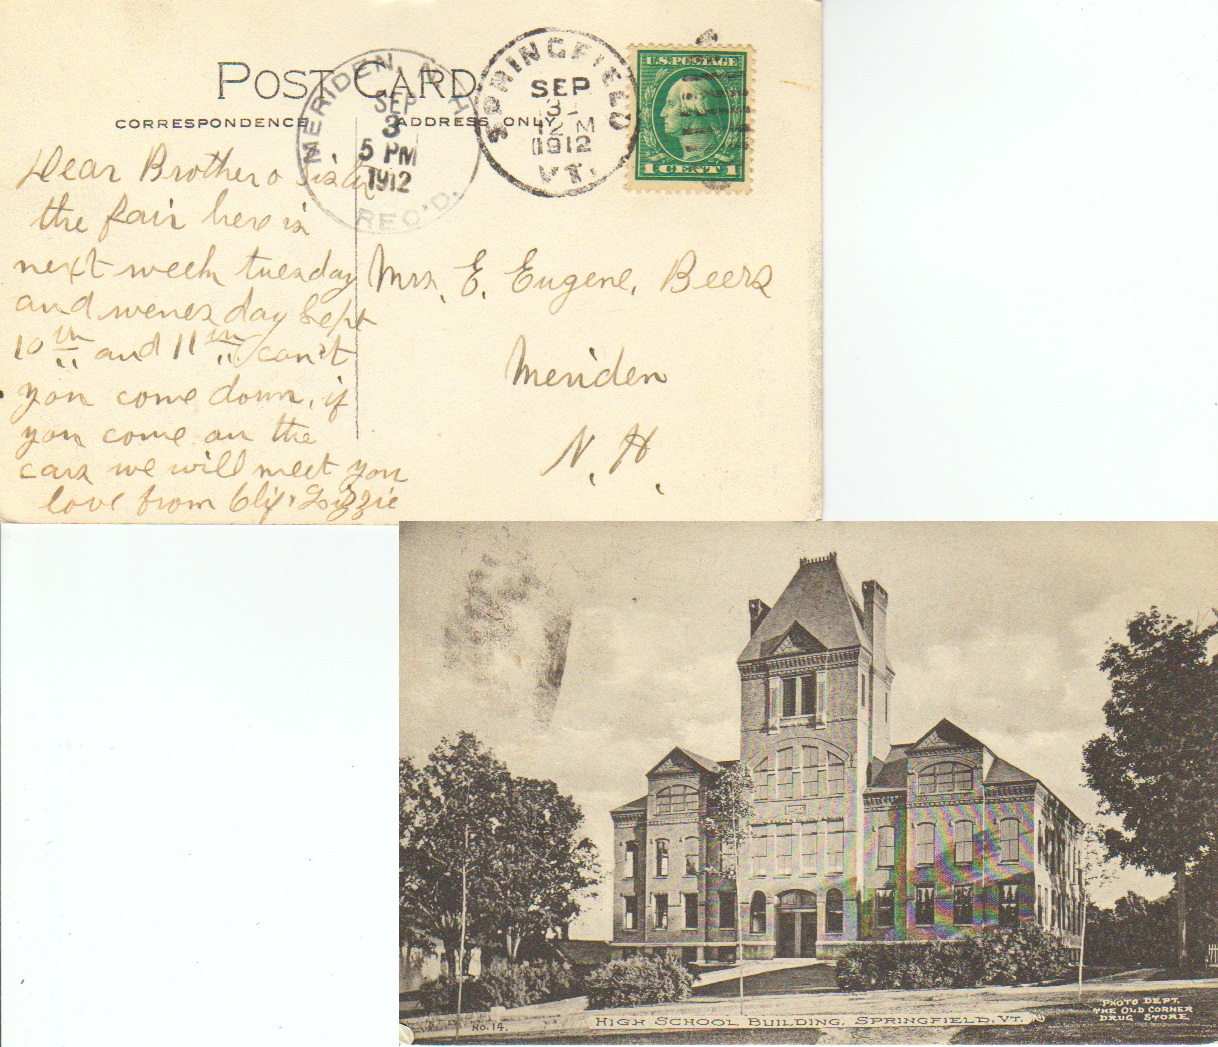 POST CARD
CORRESPONDENCE
ADDRESS ONLY
MERIDEN, N.H.
SEP
3
5 PM
1912
REC'D.
SPRINGFIELD
SEP
3
12 M
1912
VT.
U.S. POSTAGE
1 CENT 1
Dear Brother o Sisar
the fair here is
next week tuesday
and wenesday Sept
10th and 11th can't
you come down, if
you come on the
cars we will meet you
love from Lizzie
Mrs. E. Eugene. Beers
Meriden
N. H.
No. 14.
HIGH SCHOOL BUILDING, SPRINGFIELD, VT.
PHOTO DEPT.
THE OLD CORNER
DRUG STORE.